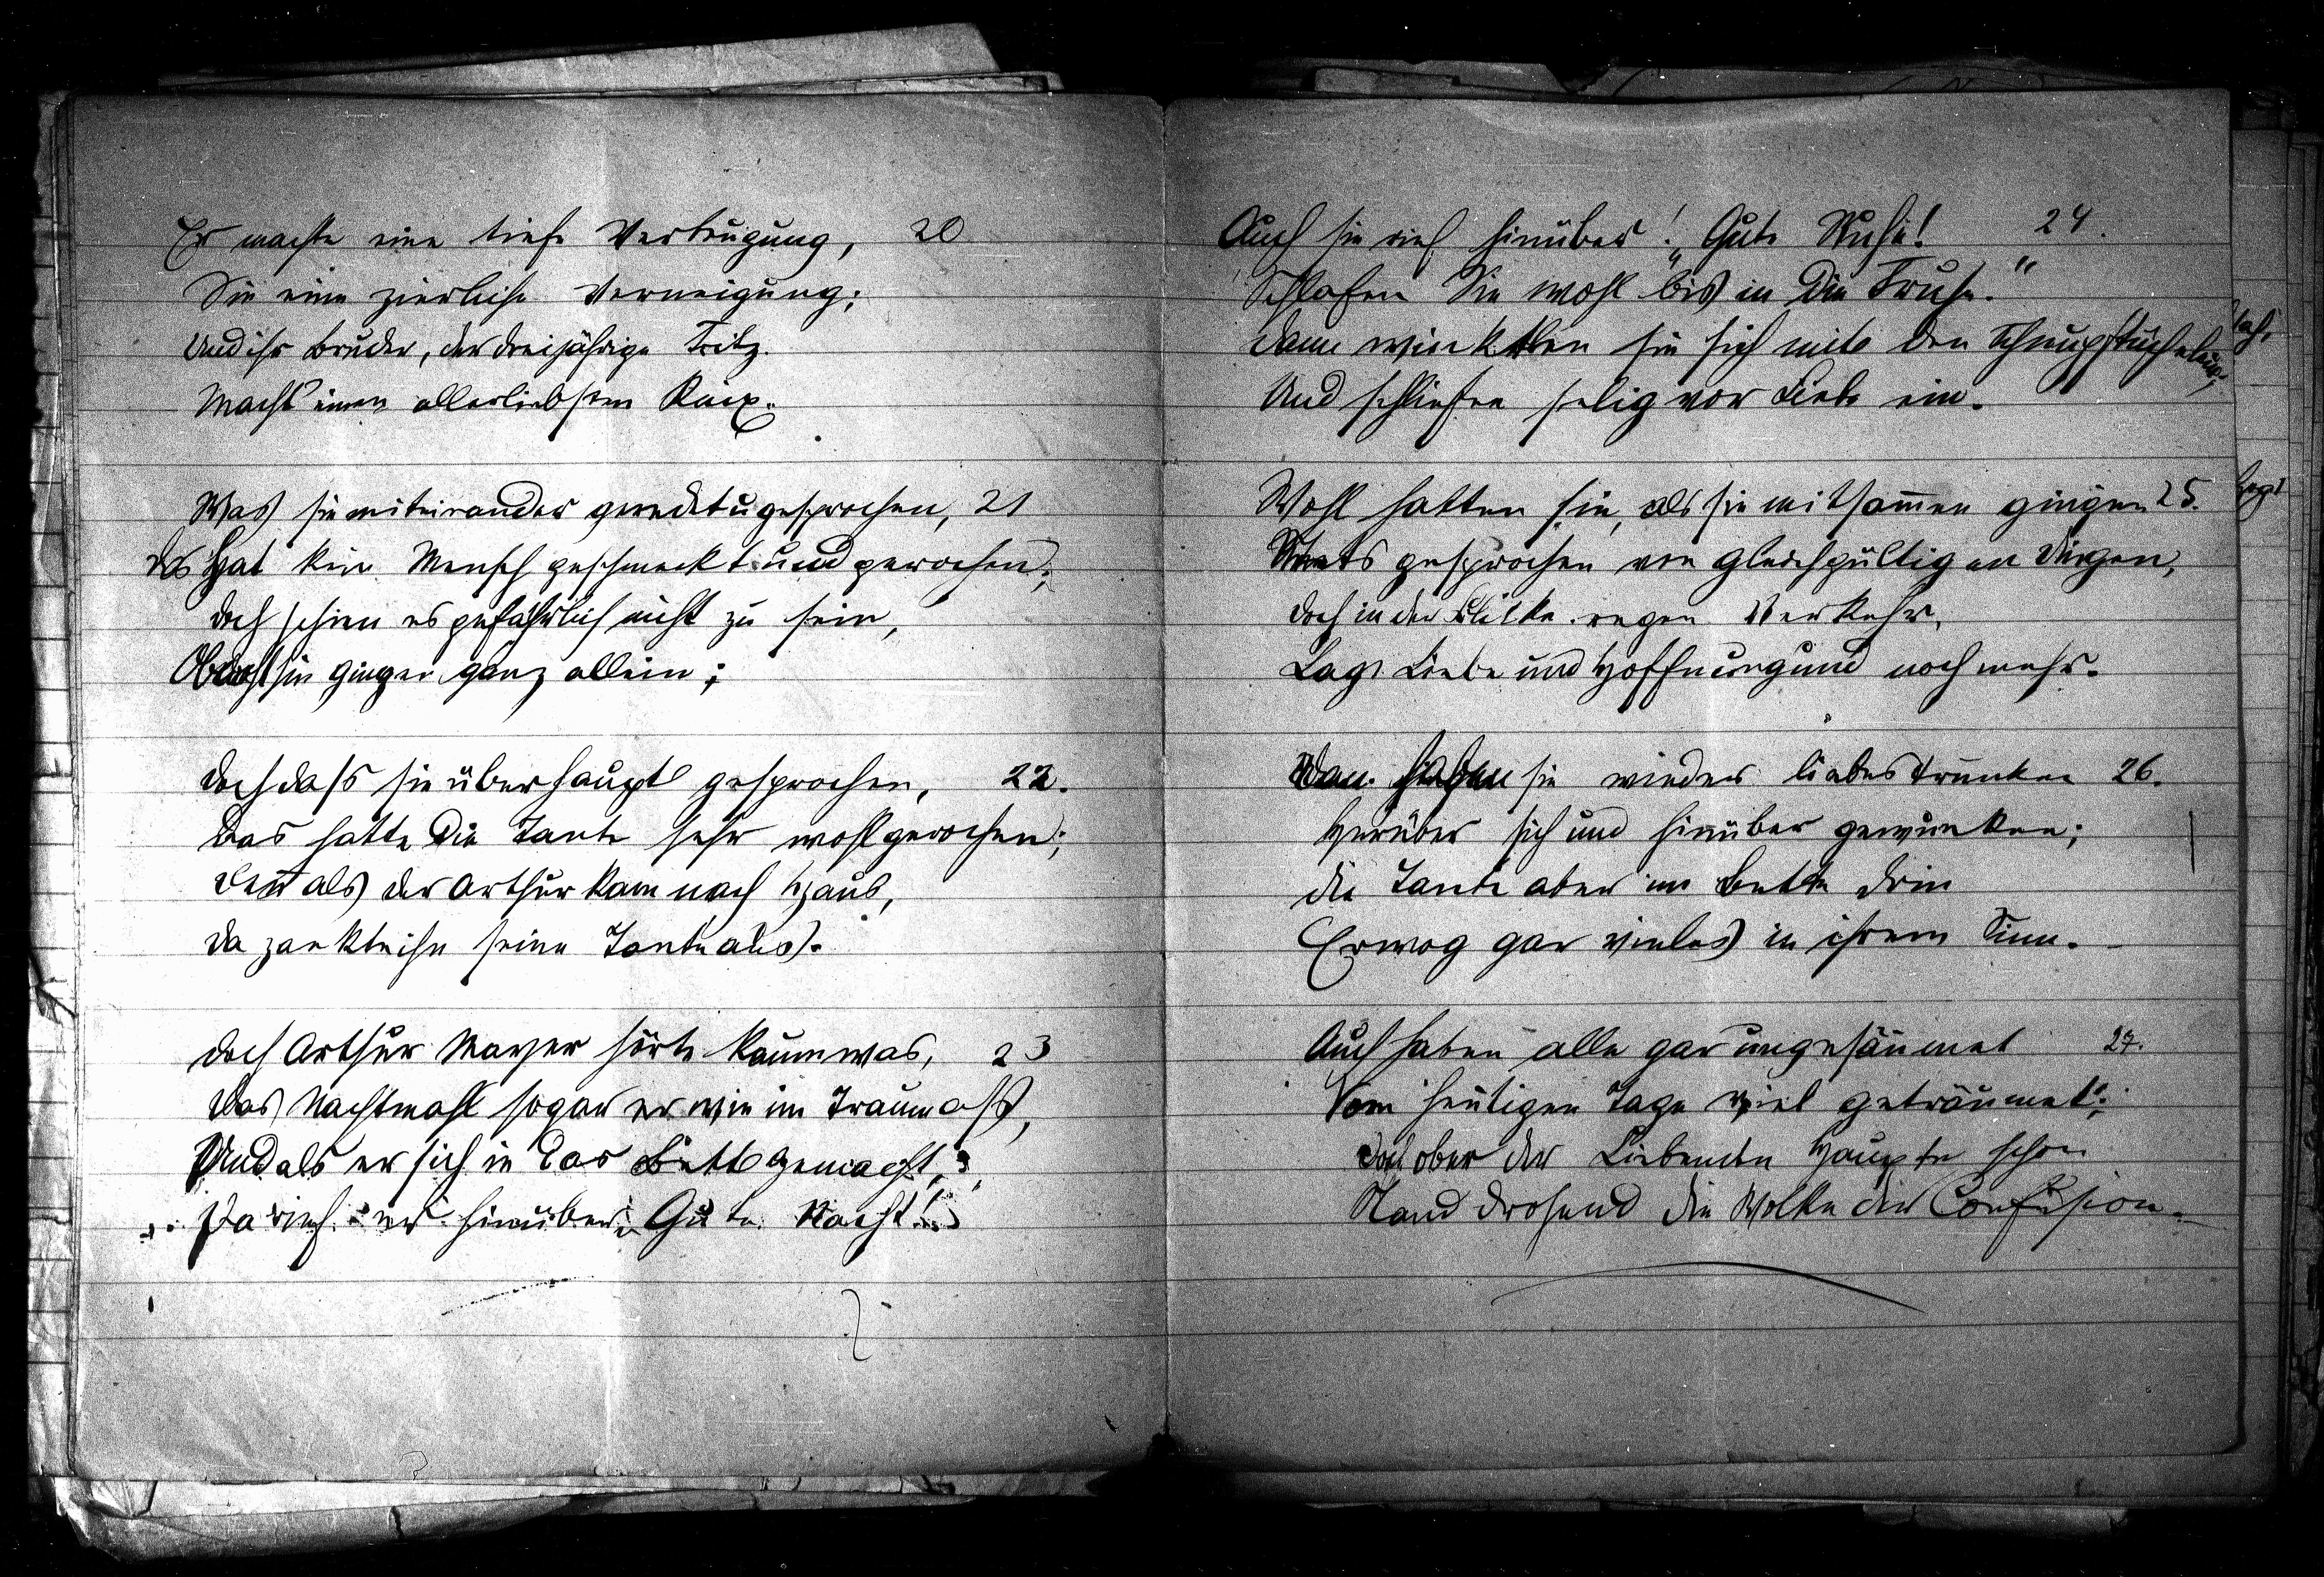 Er machte eine tiefe Verbeugung, 20
Sie eine zierliche Verneigung;
Und ihr Bruder, der dreijährige Fritz.
Macht einen allerliebsten Knix.
Was sie miteinander geredet u gesprochen, 21
das hat kein Mensch geschmeckt und gerochen;
doch schien es gefährlich nicht zu sein,
Obwohl sie gingen ganz allein;
doch dass sie überhaupt gesprochen, 22.
Das hatte die Tante sehr wohl gerochen;
denn als der Arthur kam nach Haus,
da zankte ihn seine Tante aus.
doch Arthur Mayer hörte kaum was, 23
das Nachtmahl sogar er wie im Traum aß,
Und als er sich in das Bett gemacht,
Da rief er hinüber: „Gute Nacht!"
Auch sie rief hinüber: „Gute Ruhe! 24.
Schlafen Sie wohl bis in die Fruhe."
dann winkten sie sich mit den Schnupftüchelein,
Und schliefen selig vor Liebe ein.
Wohl hatten sie, als sie mitsam̄en gingen 25.
Stets gesprochen von gleichgültigen Dingen,
doch in der Blicke regen Verkehr,
Lag Liebe und Hoffnung und noch mehr.
Dann haben sie wieder liebestrunken 26.
Herüber sich und hinüber gewunken;
die Tante aber im Bette drin
Erwog gar vieles in ihrem Sinn. -
Auch haben alle gar ungesäumet 27.
Vom heutigen Tage viel geträumet;
doch ober der Liebenden Haupte schon
Stand drohend die Wolke der Confusion.